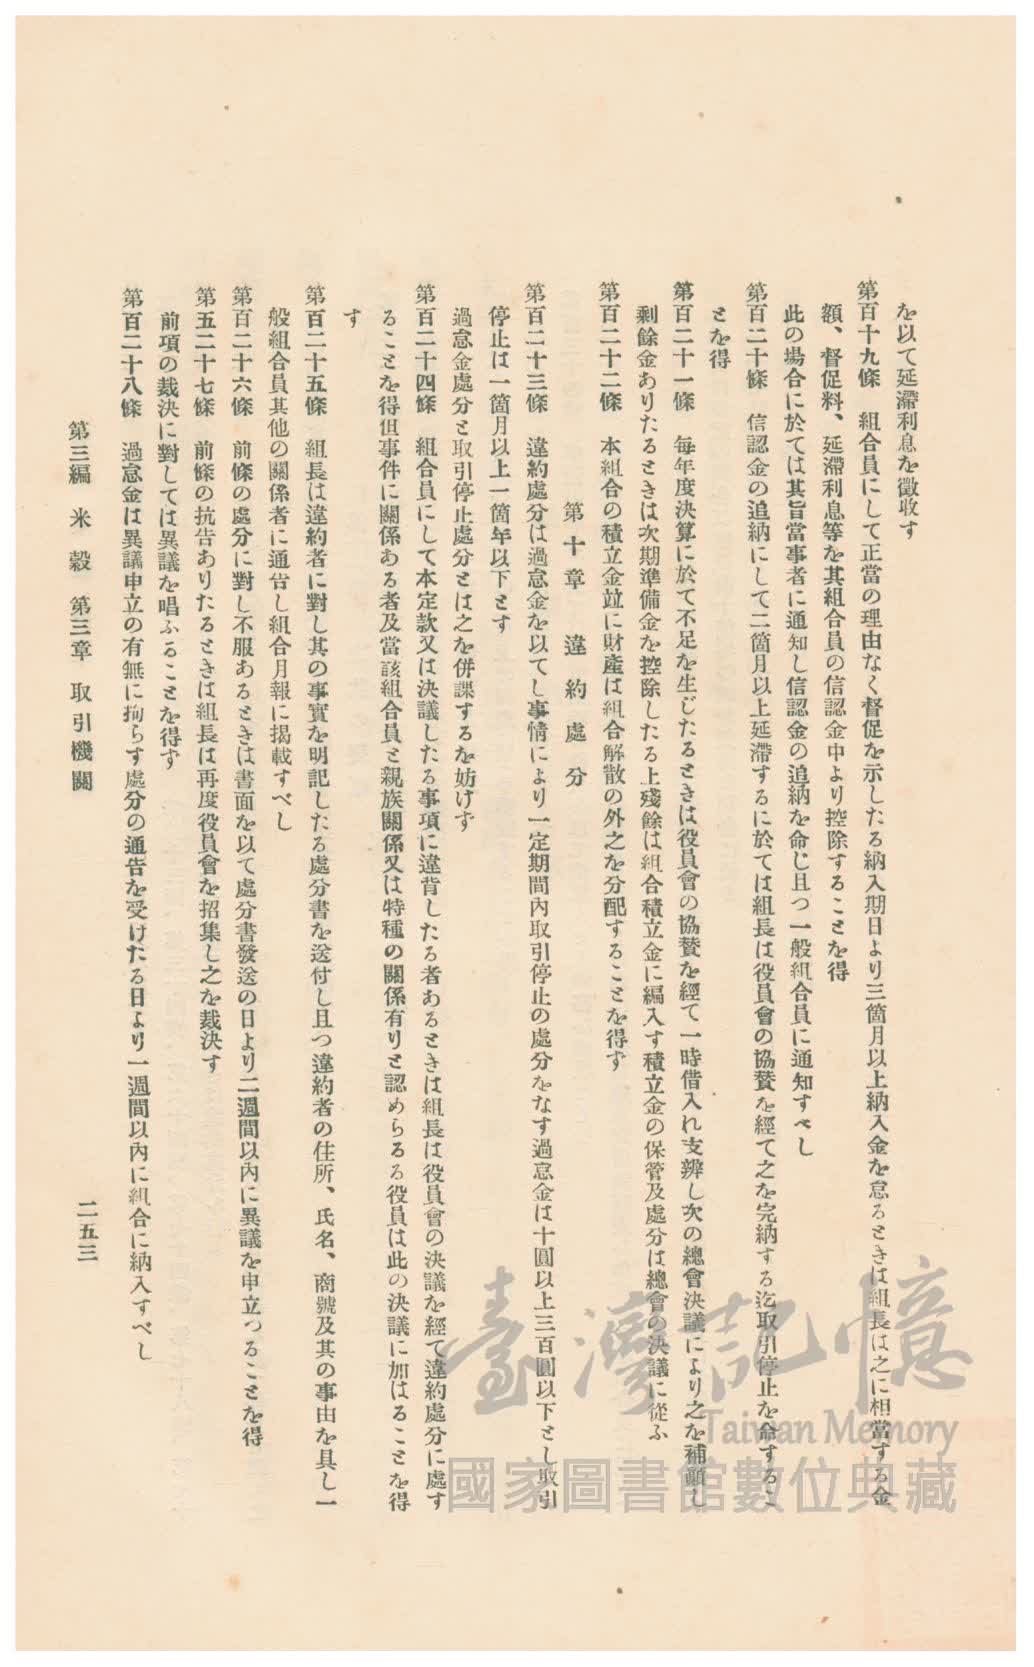 を以て延滯利息を徵收す
第百十九條　組合員にして正當の理由なく督促を示したる納入期日より三箇月以上納入金を怠るときは組長は之に相當する金
額、督促料、延滯利息等を其組合員の信認金中より控除することを得
此の場合に於ては其旨當事者に通知し信認金の追納を命じ且つ一般組合員に通知すべし
第百二十條　信認金の追納にして二箇月以上延滯するに於ては組長は役員會の協贊を經て之を完納する迄取引停止を命するこ
とを得
第百二十一條　每年度決算に於て不足を生じたるときは役員會の協贊を經て一時借入れ支辨し次の總會決議により之を補塡し
剩餘金ありたるときは次期準備金を控除したる上殘餘は組合積立金に編入す積立金の保管及處分は總會の決議に從ふ
第百二十二條　本組合の積立金竝に財產は組合解散の外之を分配することを得ず
第十章　違約處分
第百二十三條　違約處分は過怠金を以てし事情により一定期間內取引停止の處分をなす過怠金は十圓以上三百圓以下とし取引
停止は一箇月以上一箇年以下とす
過怠金處分と取引停止處分とは之を併課するを妨けず
第百二十四條　組合員にして本定款又は決議したる事項に違背したる者あるときは組長は役員會の決議を經て違約處分に處す
ることを得但事件に關係ある者及當該組合員と親族關係又は特種の關係有りと認めらるる役員は此の決議に加はることを得
す
第百二十五條　組長は違約者に對し其の事實を明記したる處分書を送付し且つ違約者の住所、氏名、商號及其の事由を具し一
般組合員其他の關係者に通告し組合月報に揭載すべし
第百二十六條　前條の處分に對し不服あるときは書面を以て處分書發送の日より二週間以內に異議を申立つることを得
第五二十七條　前條の抗告ありたるときは組長は再度役員會を招集し之を裁決す
前項の裁決に對しては異議を唱ふることを得ず
第百二十八條　過怠金は異議申立の有無に拘らす處分の通告を受けたる日より一週間以內に組合に納入すべし
第三編　米穀　第三章　取引機關
二五三
臺灣記憶
Taiwan Memory
國家圖書館數位典藏